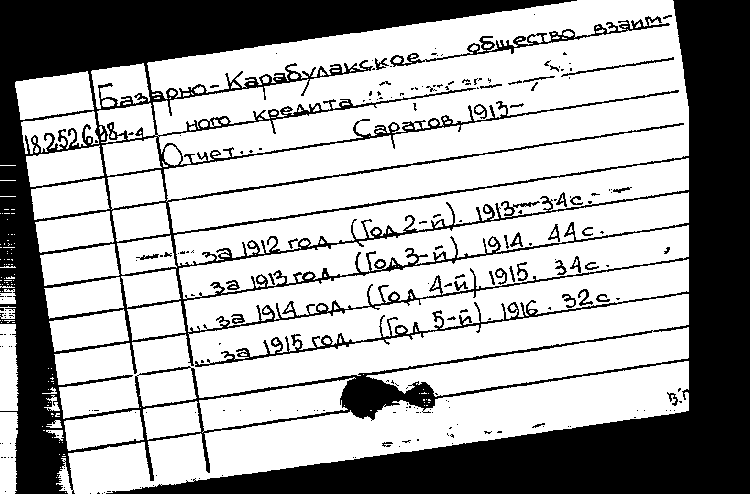 Базарно-Карабулакское общество взаим-
ного кредита
18.252.6.98 1-4
Отчет... Саратов, 1913-
... за 1912 год. (Год 2-й). 1913. 34с.
... за 1913 год. (Год 3-й). 1914. 44с.
... за 1914 год. (Год 4-й). 1915. 34с.
... за 1915 год. (Год 5-й). 1916. 32с.